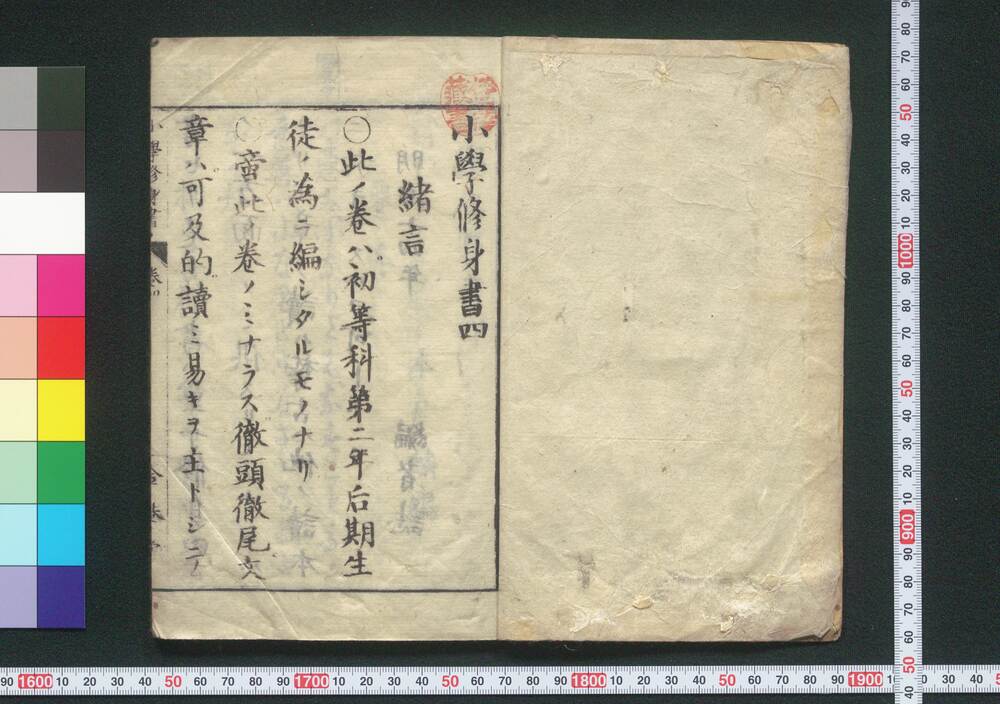 小學修身書四
緒言
○此ノ卷ハ初等科第二年后期生
徒ノ為ニ編シタルモノナリ
○啻此ノ卷ノミナラス徹頭徹尾文
章ハ可及的讀ミ易キヲ主トシテ
小學修身書 卷四
90 1600 10 20 30 40 50 60 70 80 90 1700 10 20 30 40 50 60 70 80 90 1800 10 20 30 40 50 60 70 80 90 1900 10 20 30 40
90 80 70 60 50 40 30 20 10 1000 90 80 70 60 50 40 30 20 10 900 90 80 70 60 50 40